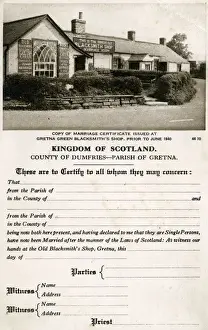 BLACKSMITH SHOP
COPY OF MARRIAGE CERTIFICATE ISSUED AT
GRETNA GREEN BLACKSMITH'S SHOP, PRIOR TO JUNE 1940
KINGDOM OF SCOTLAND.
COUNTY OF DUMFRIES—PARISH OF GRETNA.
These are to Certify to all whom they may concern:
That
from the Parish of
in the County of
and
from the Parish of
in the County of
being now here present, and having declared to me that they are Single Persons,
have now been Married after the manner of the Laws of Scotland: As witness our
hands at the Old Blacksmith's Shop, Gretna, this
day of
Parties {
Witness { Name
Address
Witness { Name
Address
Priest